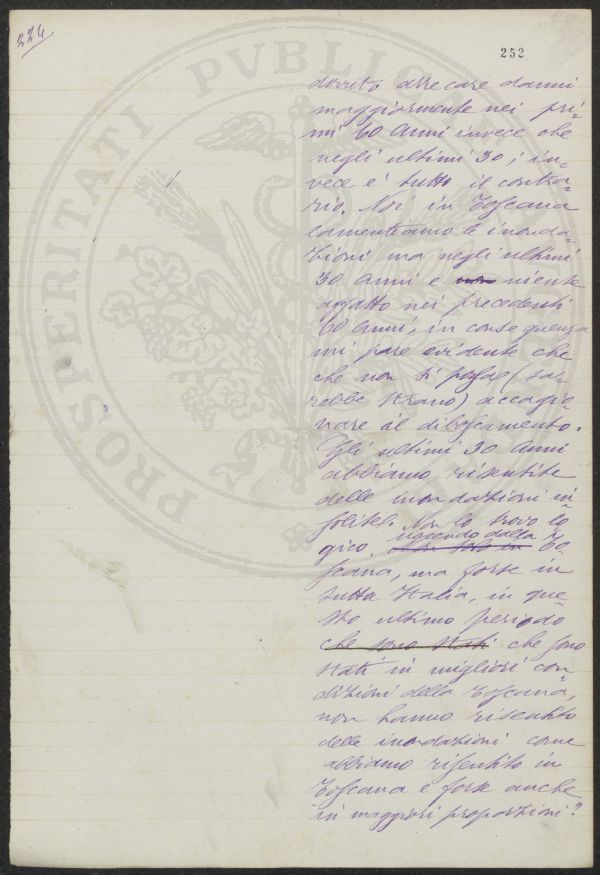 224
252
PROSPERITATI PVBLICAE
dovuto arrecare danni
maggiormente nei pri-
mi 60 Anni invece che
negli ultimi 30; in-
vece è tutto il contra-
rio. Noi in Toscana
lamentiamo le inonda-
zioni ma negli ultimi
30 anni e non niente
affatto nei precedenti
60 anni, in conseguenza
mi pare evidente che
che non si possa (sa-
rebbe strano) accagio-
nare il diboscamento.
Gli ultimi 30 Anni
abbiamo risentite
delle inondazioni in
solite. Non lo trovo lo
uscendo dalla
gico. Non solo in To-
scana, ma forse in
tutta Italia, in que-
sto ultimo periodo
che sono stati che sono
stati in migliori con
dizioni della Toscana,
non hanno risentito
delle inondazioni come
abbiamo risentito in
Toscana e forse anche
in maggiori proporzioni?